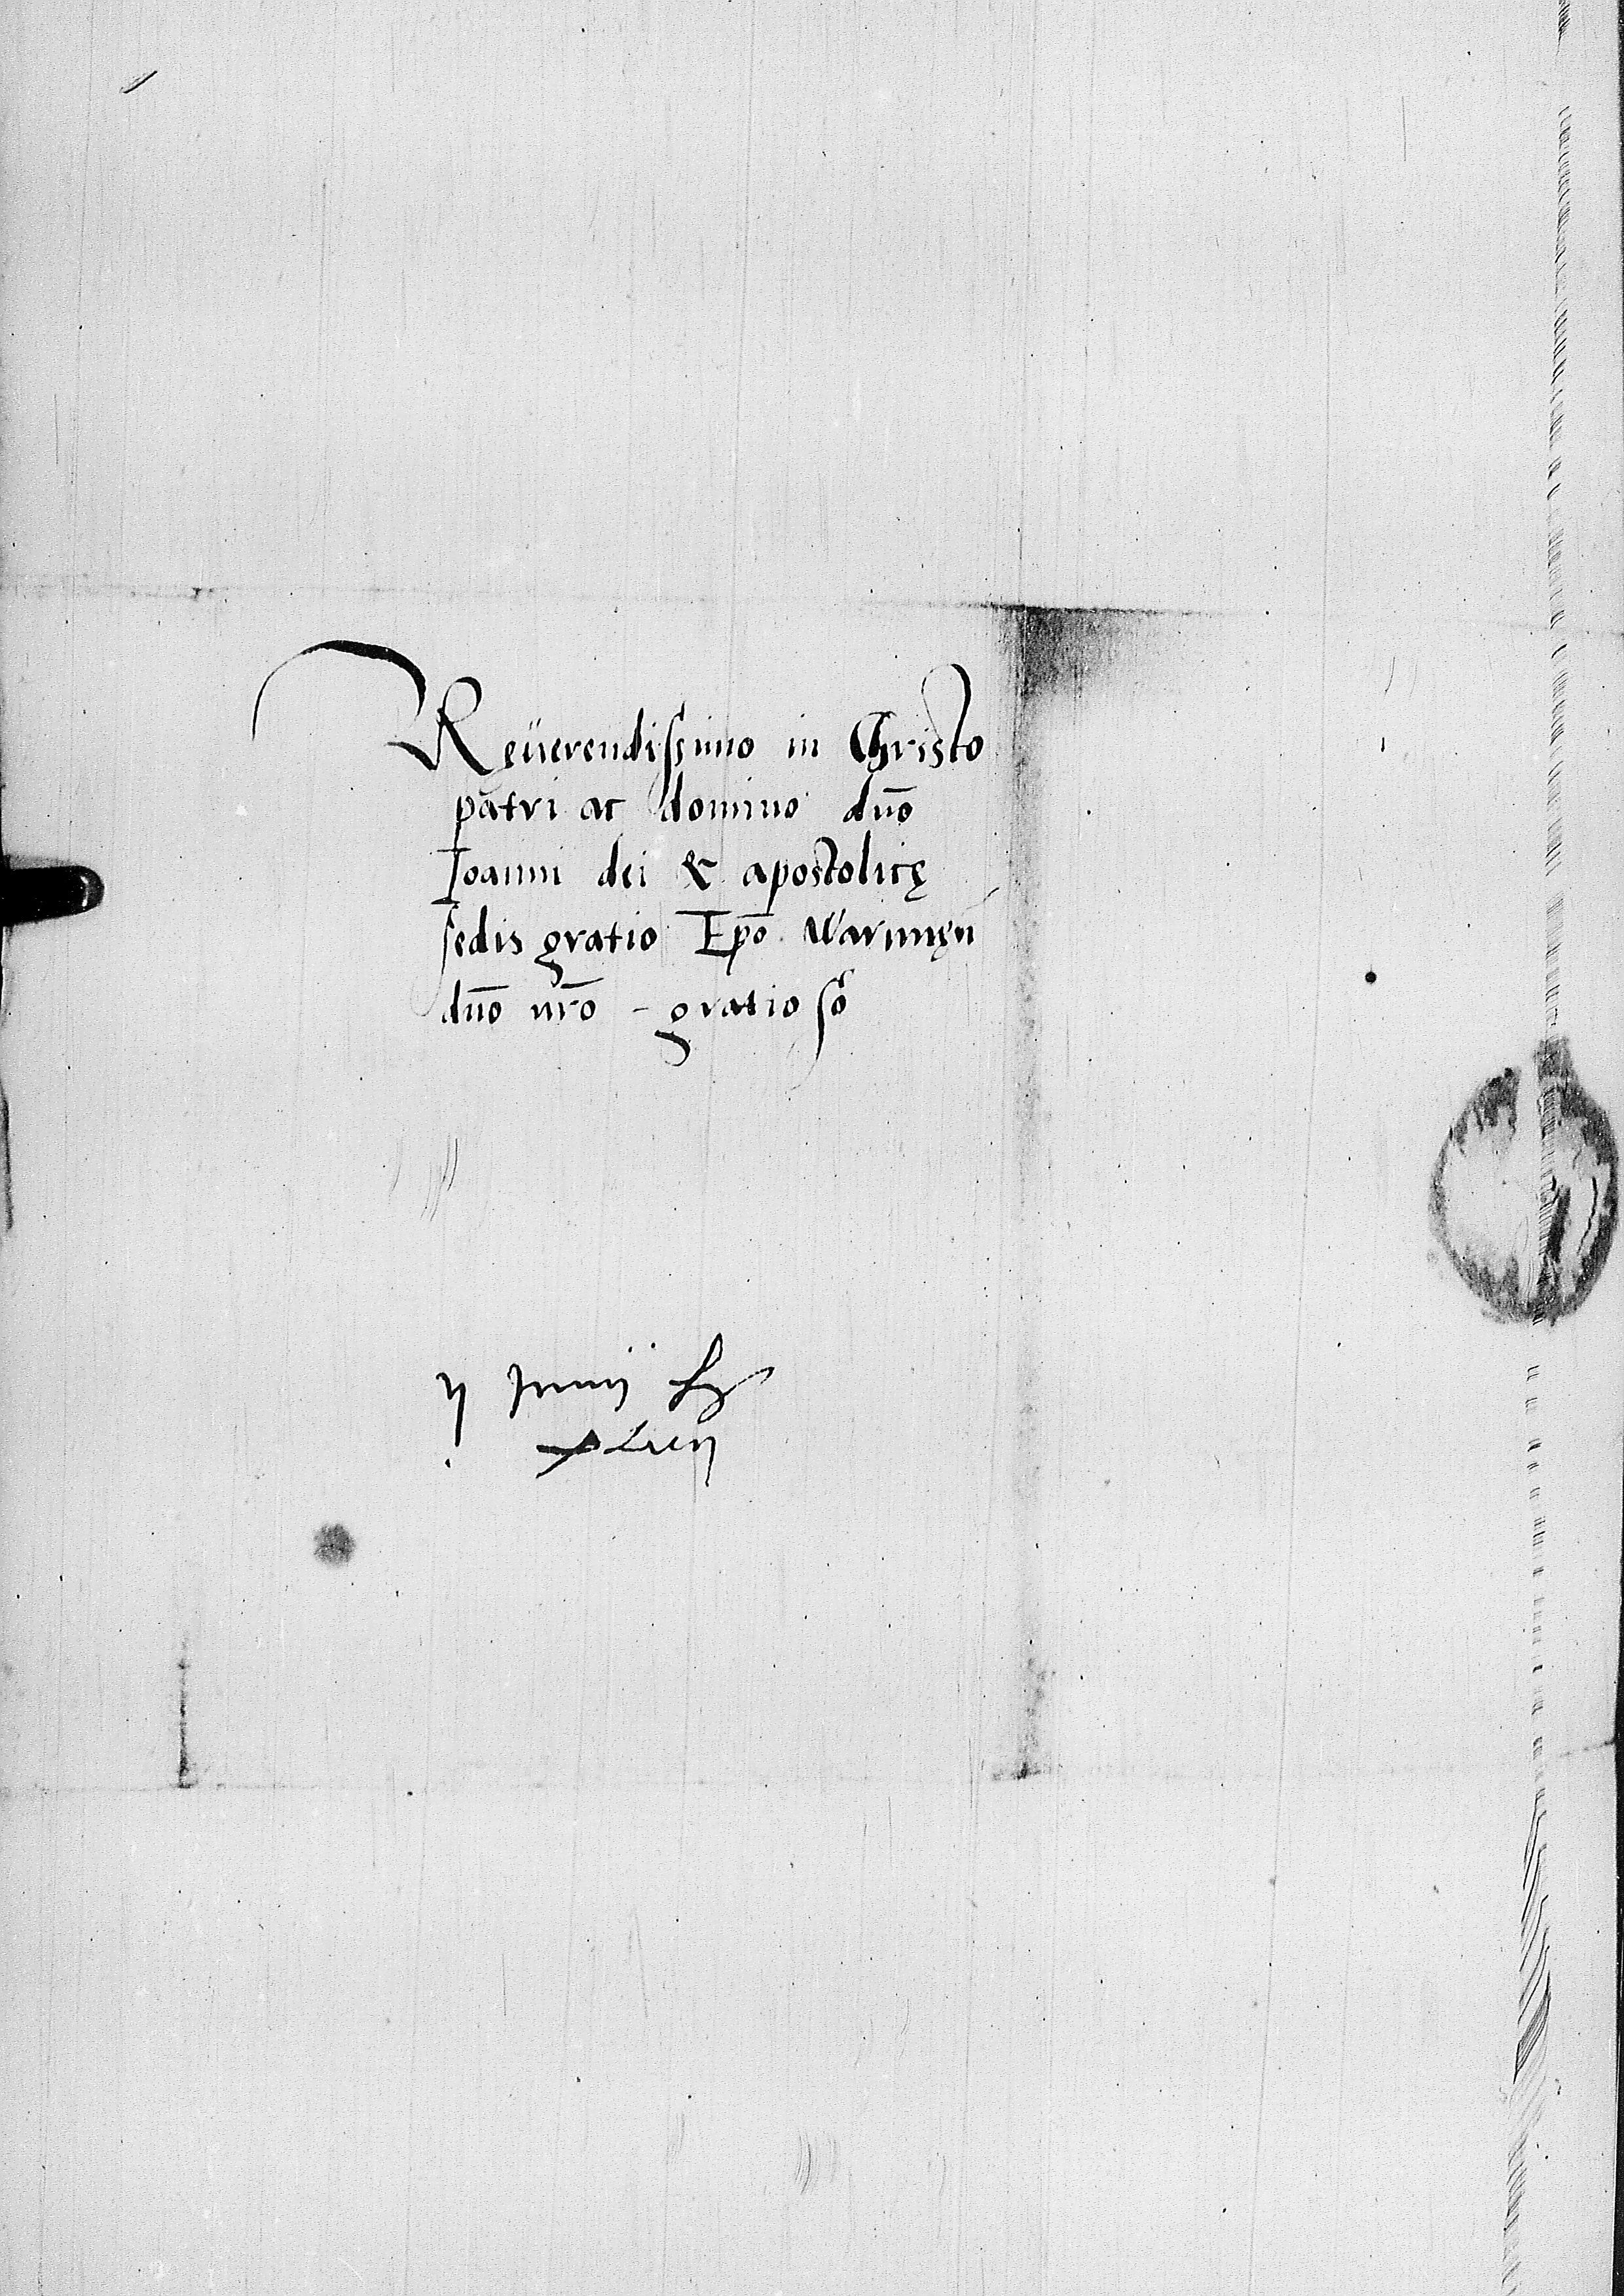 Reüerendissimo in Christo
patri ac domino dn̄o
Ioanni dei & apostolicę
sedis gratio Ep̄o Warmęn̄
dn̄o nr̄o - gratioso
ij Junij